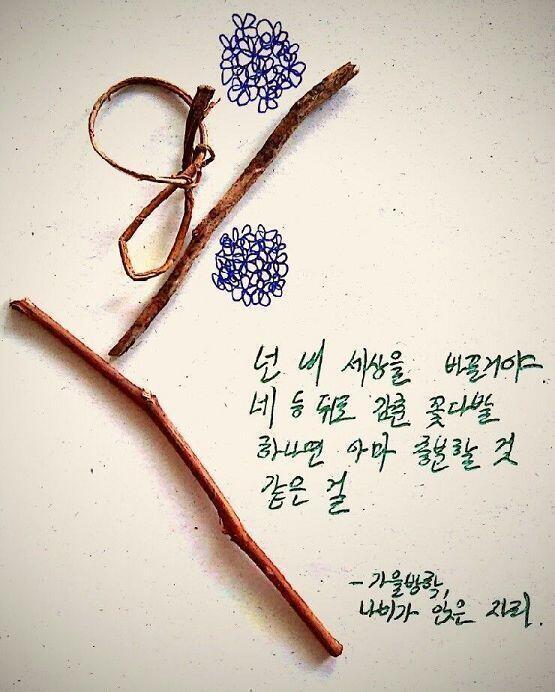 넌 내 세상을 바꿀거야
네 등 뒤로 감춘 꽃다발
하나면 아마 충분할 것
같은 걸
- 가을방학,
나비가 앉은 자리.